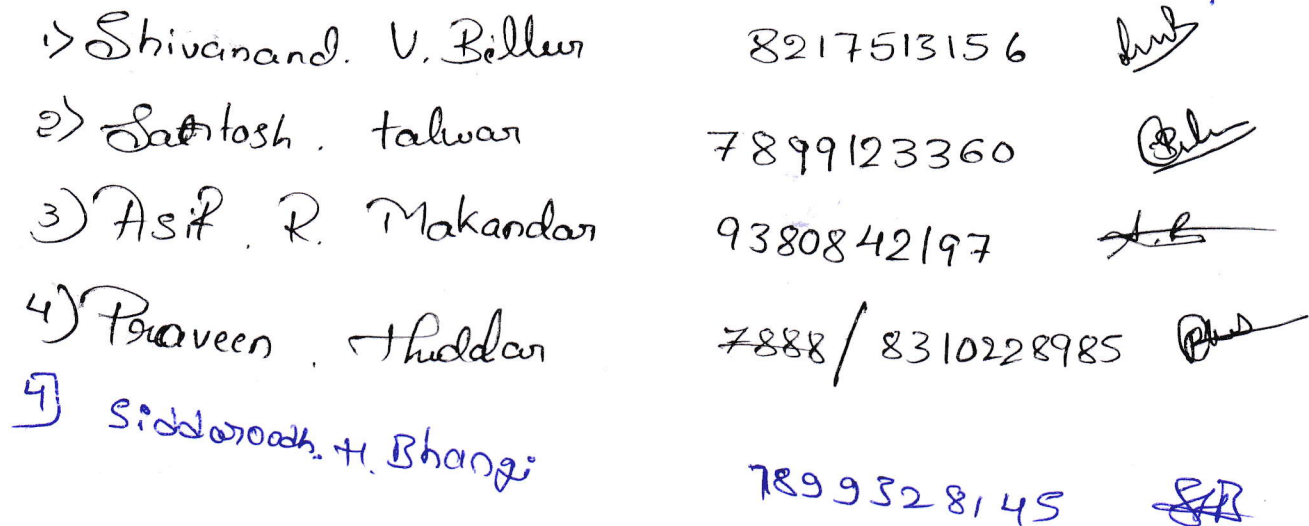 1) Shivanand. V. Billur 8217513156
2) Santosh. talwar 7899123360
3) Asif. R. Makandar 9380842197 A.R
4) Praveen. Huddar 7888/ 8310228985
4] Siddaroodh. H. Bhangi
7899328145 SHB